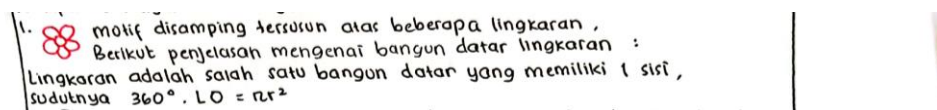 1. motif disamping tersusun atas beberapa lingkaran,
Berikut penjelasan mengenai bangun datar lingkaran :
Lingkaran adalah salah satu bangun datar yang memiliki 1 sisi,
sudutnya 360°. LO = πr²